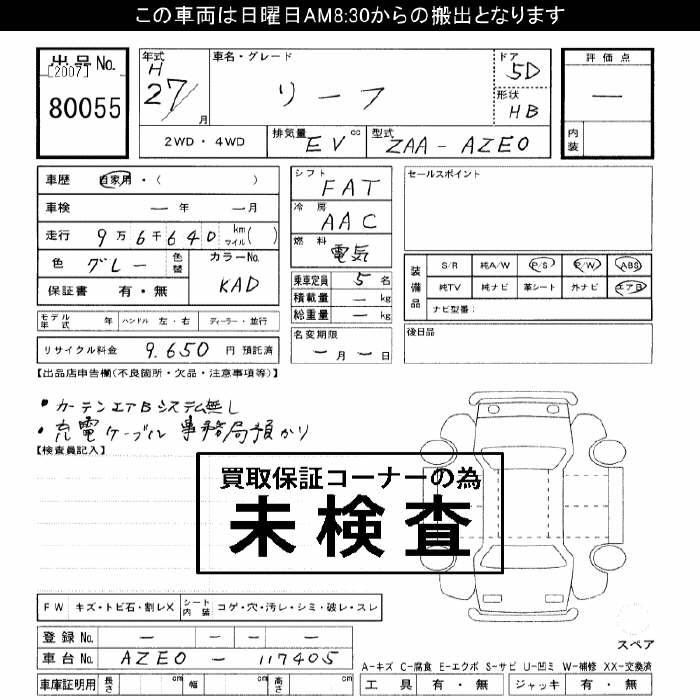 この車両は日曜日AM8:30からの搬出となります
出品No.
[2007]
80055
年式 H 27/ 月
車名・グレード
リーフ
ドア 5D
形状 HB
評価点
—
内装
2WD・4WD
排気量 EV cc
型式 ZAA-AZE0
車歴 自家用・( )
車検 — 年 — 月
走行 9万6千640 km マイル( )
色 グレー 色替
カラーNo. KAD
保証書 有・無
シフト FAT
冷房 AAC
燃料 電気
乗車定員 5名
積載量 — kg
総重量 — kg
名変期限
— 月 — 日
セールスポイント
装備品
S/R 純A/W P/S P/W ABS
純TV 純ナビ 革シート 外ナビ エアB
ナビ型番:
後日品
モデル年式 年 ハンドル 左・右 ディーラー・並行
リサイクル料金 9.650 円 預託済
【出品店申告欄(不良箇所・欠品・注意事項等)】
・カーテンエアBシステム無し
・充電ケーブル 事務局預かり
【検査員記入】
買取保証コーナーの為
未検査
FW キズ・トビ石・割レX シート内装 コゲ・穴・汚レ・シミ・破レ・スレ
登録No. — — —
車台No. AZE0 - 117405
車庫証明用 長さ cm 幅 cm 高さ cm
スペア
A-キズ C-腐食 E-エクボ S-サビ U-凹ミ W-補修 XX-交換済
工具 有・無 ジャッキ 有・無